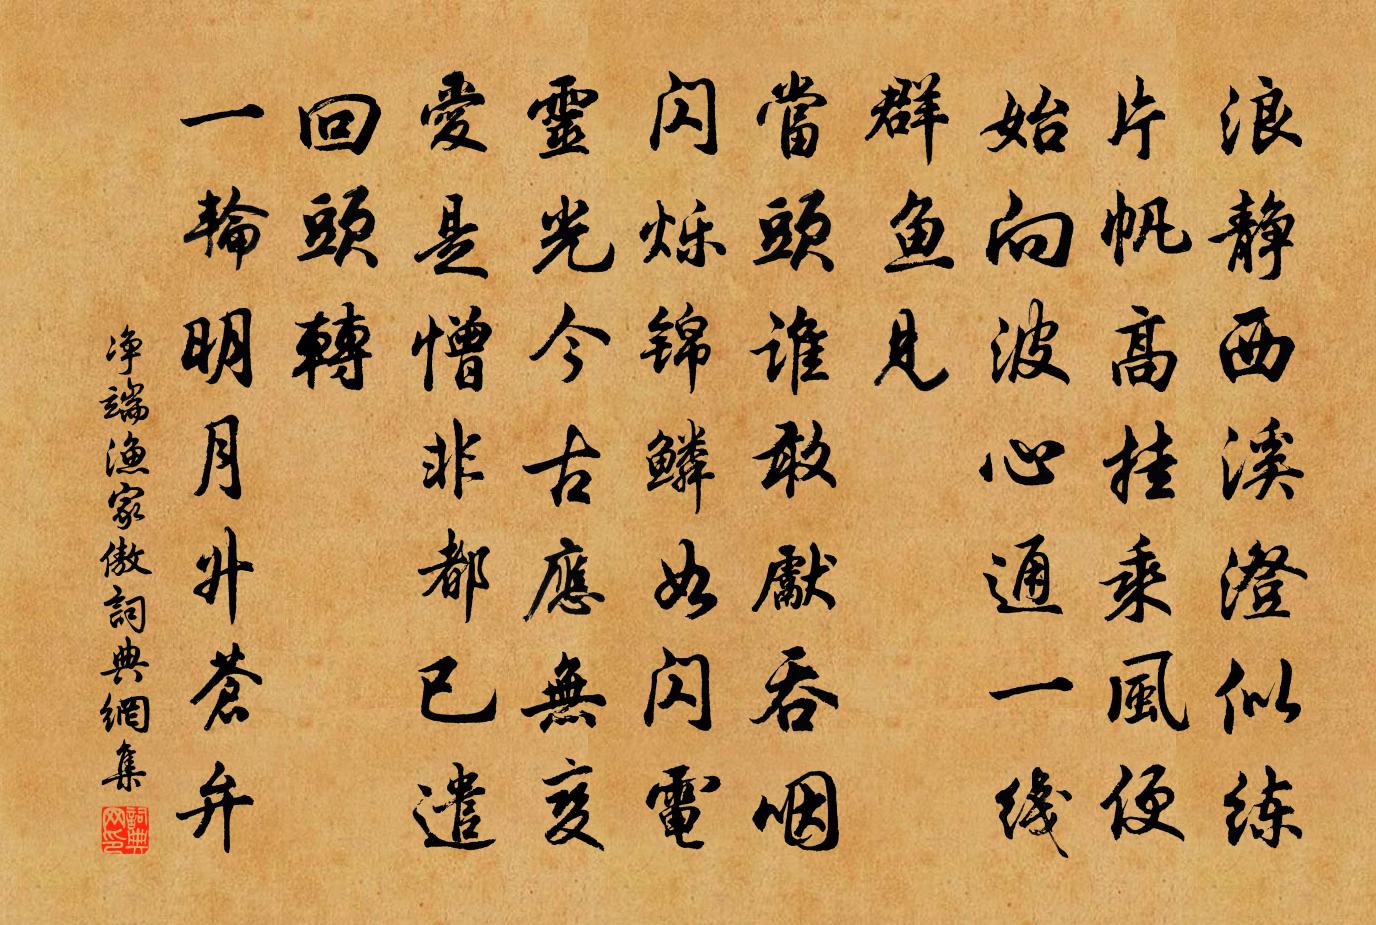 浪静西溪澄似练
片帆高挂乘風便
始向波心通一线
群鱼見
當頭谁敢獻吞咽
闪烁锦鳞如闪電
靈光今古應無变
愛是憎非都已遣
回頭轉
一輪明月升苍弁
净端渔家傲詞典網集
詞典网印